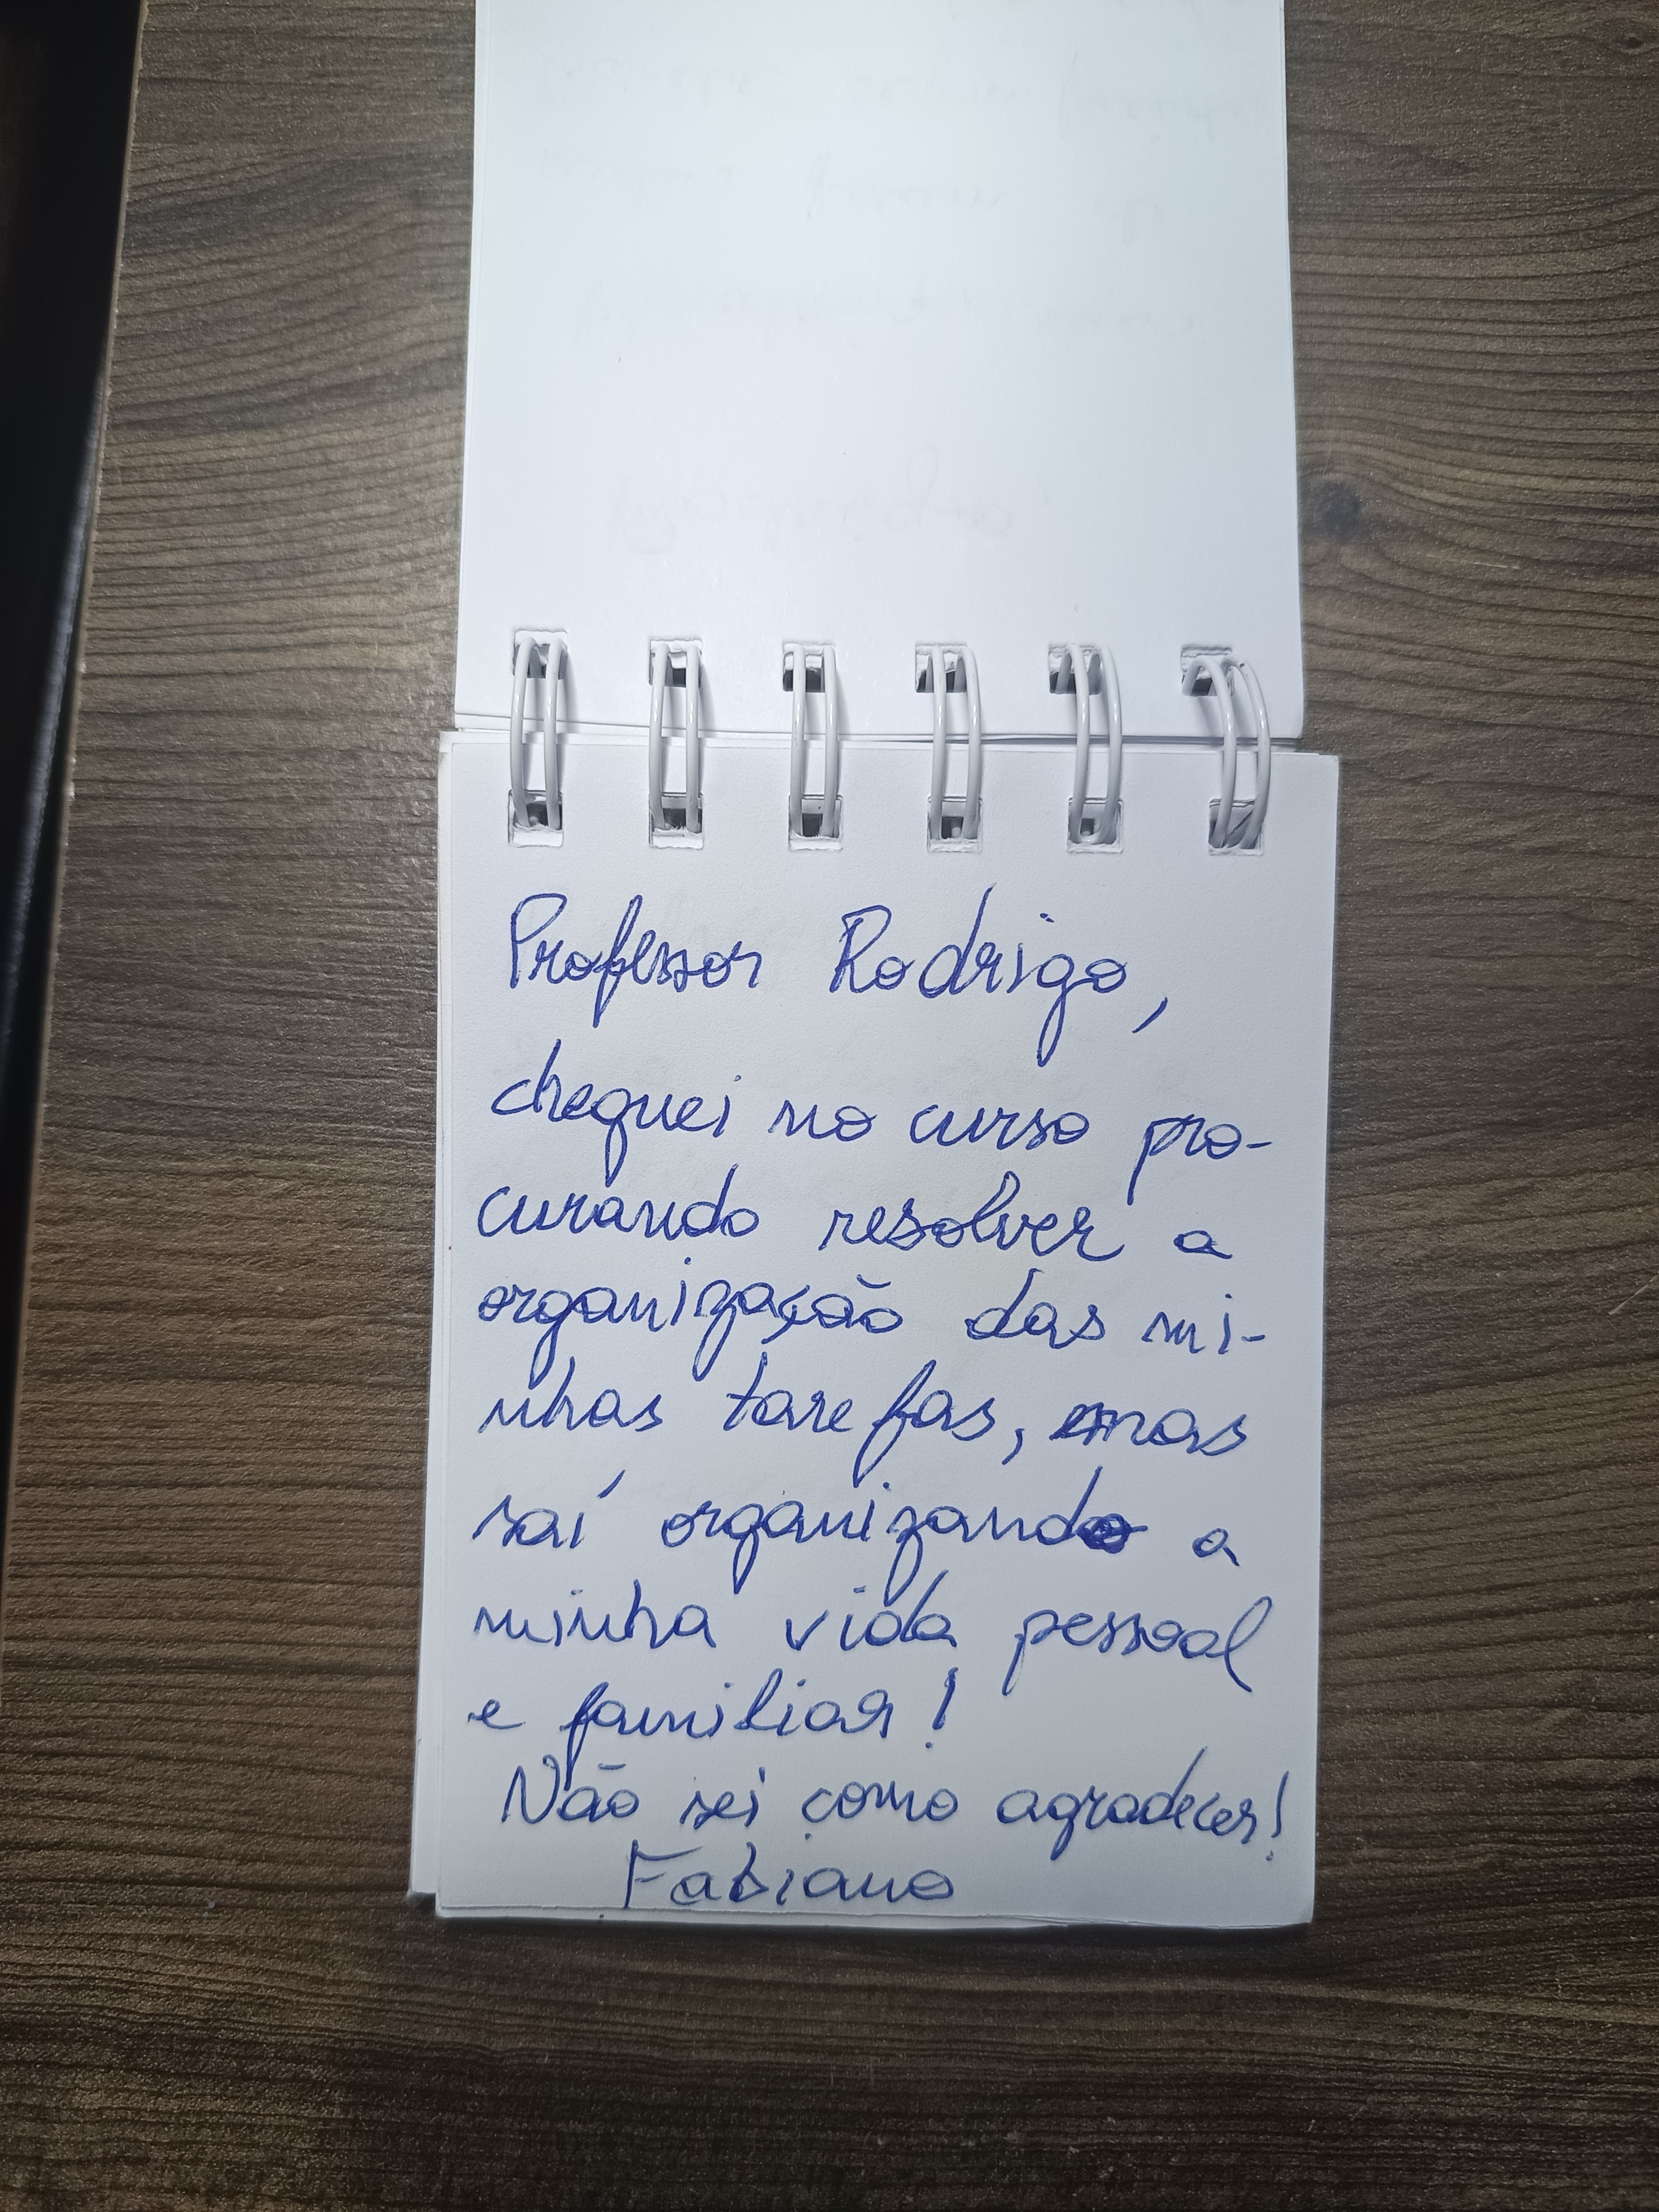 Professor Rodrigo,
cheguei no curso pro-
curando resolver a
organização das mi-
nhas tarefas, mas
saí organizando a
minha vida pessoal
e familiar!
Não sei como agradecer!
Fabiano